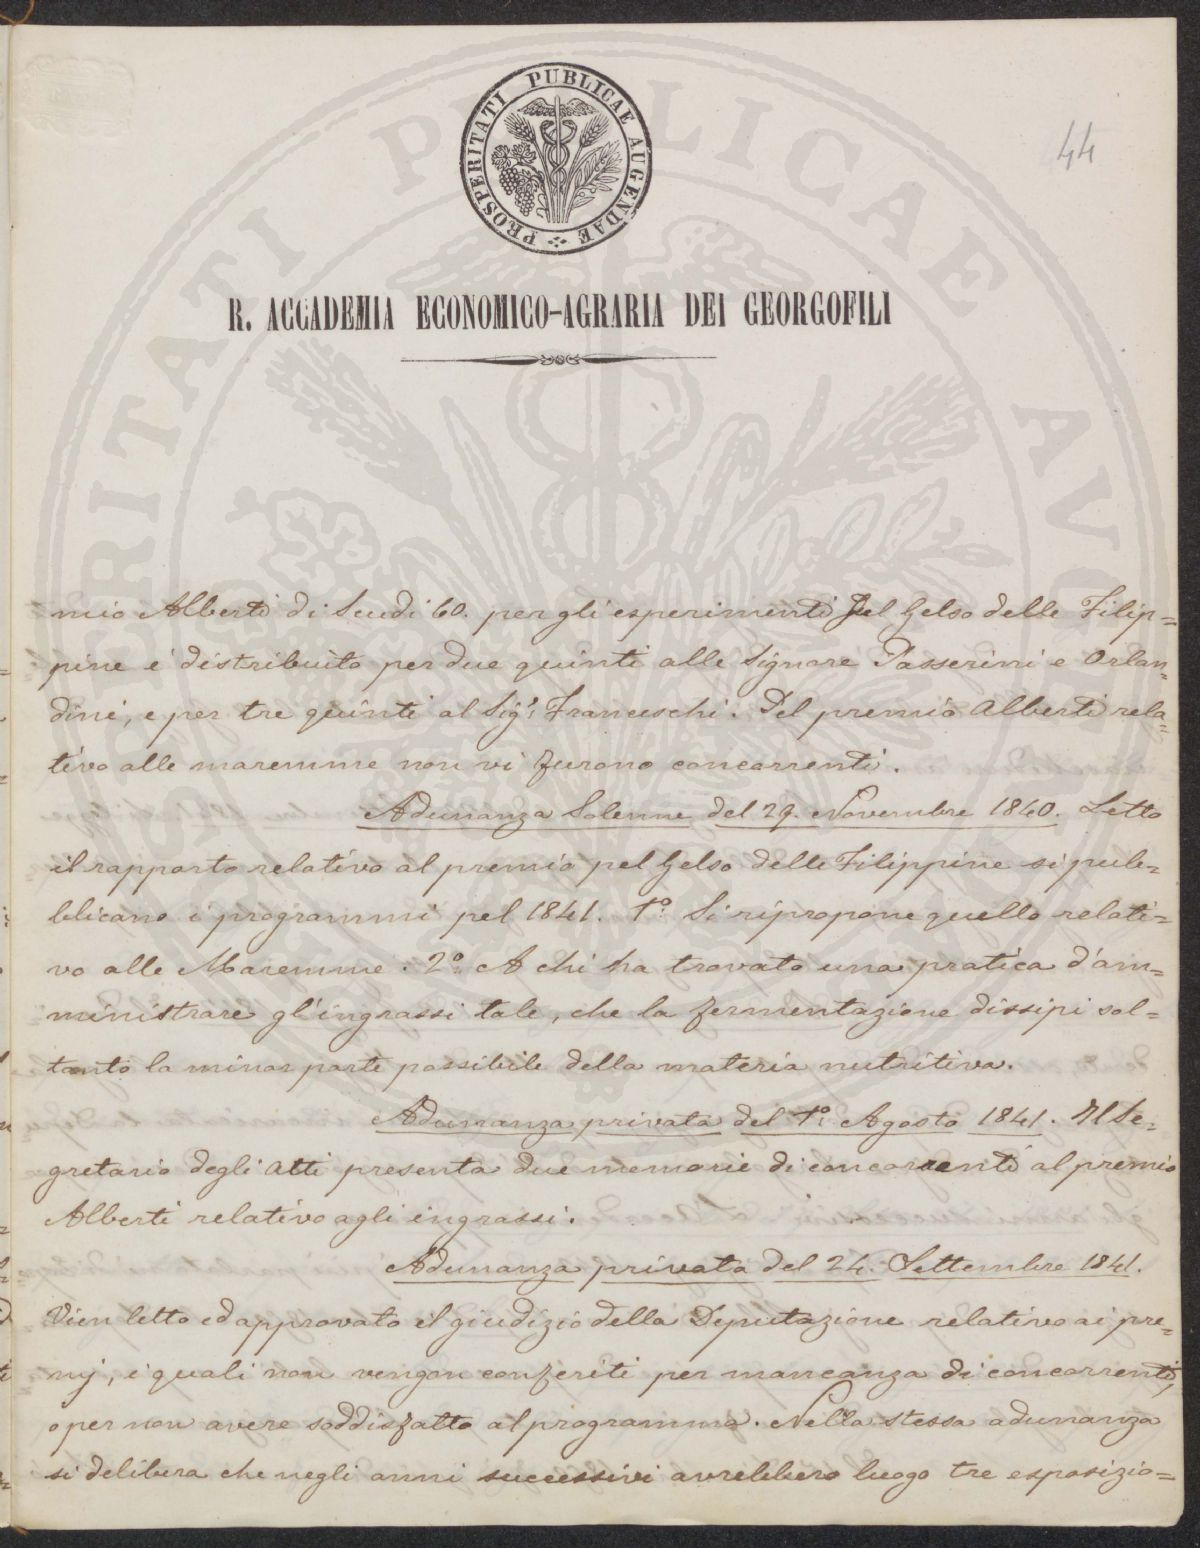 PROSPERITATI PUBLICAE AUGENDAE
44
R. ACCADEMIA ECONOMICO-AGRARIA DEI GEORGOFILI
mio Alberti di Scudi 60. per gli esperimenti del Gelso delle Filip=
pine è distribuito per due quinti alle Signore Passerini e Orlan=
dini, e per tre quinti al Sigr. Franceschi. Del premio Alberti rela=
tivo alle maremme non vi furono concorrenti.
Adunanza Solenne del 29. Novembre 1840. Letto
il rapporto relativo al premio pel Gelso delle Filippine si pub=
blicano i programmi pel 1841. 1º Si ripropone quello relati=
vo alle Maremme. 2º A chi ha trovato una pratica d'am=
ministrare gl'ingrassi tale, che la fermentazione dissipi sol=
tanto la minor parte possibile della materia nutritiva.
Adunanza privata del 1º Agosto 1841. Il Se=
gretario degli Atti presenta due memorie di concorrenti al premio
Alberti relativo agli ingrassi.
Adunanza privata del 24. Settembre 1841.
Vien letto ed approvato il giudizio della Deputazione relativo ai pre=
mj, i quali non vengon conferiti per mancanza di concorrenti,
o per non avere soddisfatto al programma. Nella stessa adunanza
si delibera che negli anni successivi avrebbero luogo tre esposizio=